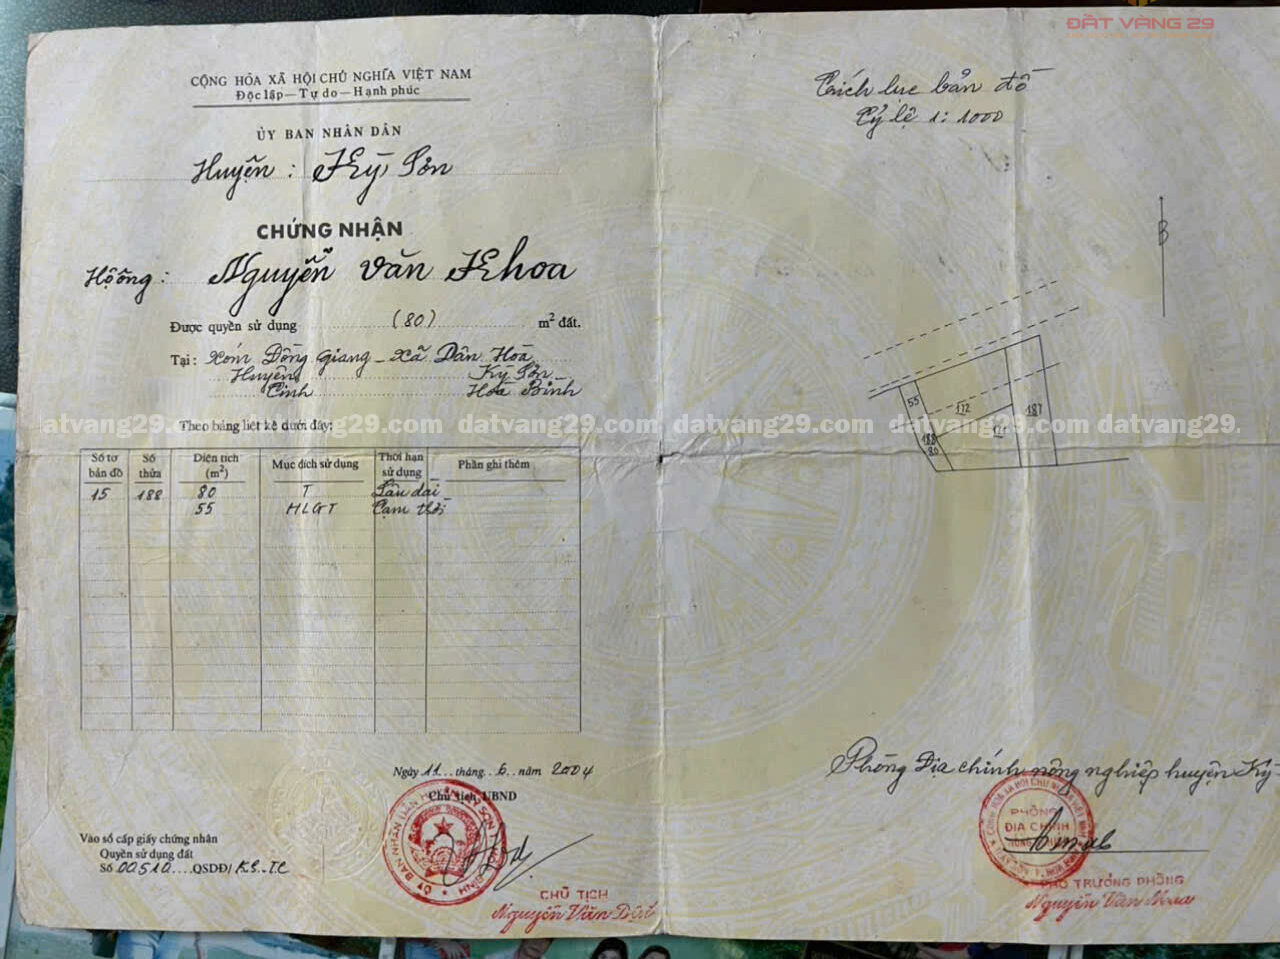 ĐẤT VÀNG 29
CỘNG HÒA XÃ HỘI CHỦ NGHĨA VIỆT NAM
Độc lập — Tự do — Hạnh phúc
ỦY BAN NHÂN DÂN
Huyện: Kỳ Sơn
CHỨNG NHẬN
Hộ ông: Nguyễn Văn Khoa
Được quyền sử dụng (80) m² đất.
Tại: Xóm Đồng Giang - Xã Dân Hòa
Huyện Kỳ Sơn
Tỉnh Hòa Bình
Theo bảng liệt kê dưới đây:
Số tờ bản đồ Số thửa Diện tích (m²) Mục đích sử dụng Thời hạn sử dụng Phần ghi thêm
15 188 80 T Lâu dài
55 HLGT Tạm thời
Ngày 11 tháng 6 năm 2004
Chủ tịch UBND
Vào sổ cấp giấy chứng nhận
Quyền sử dụng đất
Số 00510 QSDĐ/ K.S-T.C
CHỦ TỊCH
Nguyễn Văn
Trích lục bản đồ
Tỷ lệ 1: 1000
B
55
172
187
188
80
Phòng Địa chính nông nghiệp huyện Kỳ
PHÒNG
ĐỊA CHÍNH
PHÓ TRƯỞNG PHÒNG
Nguyễn Văn
datvang29.com datvang29.com datvang29.com datvang29.com datvang29.